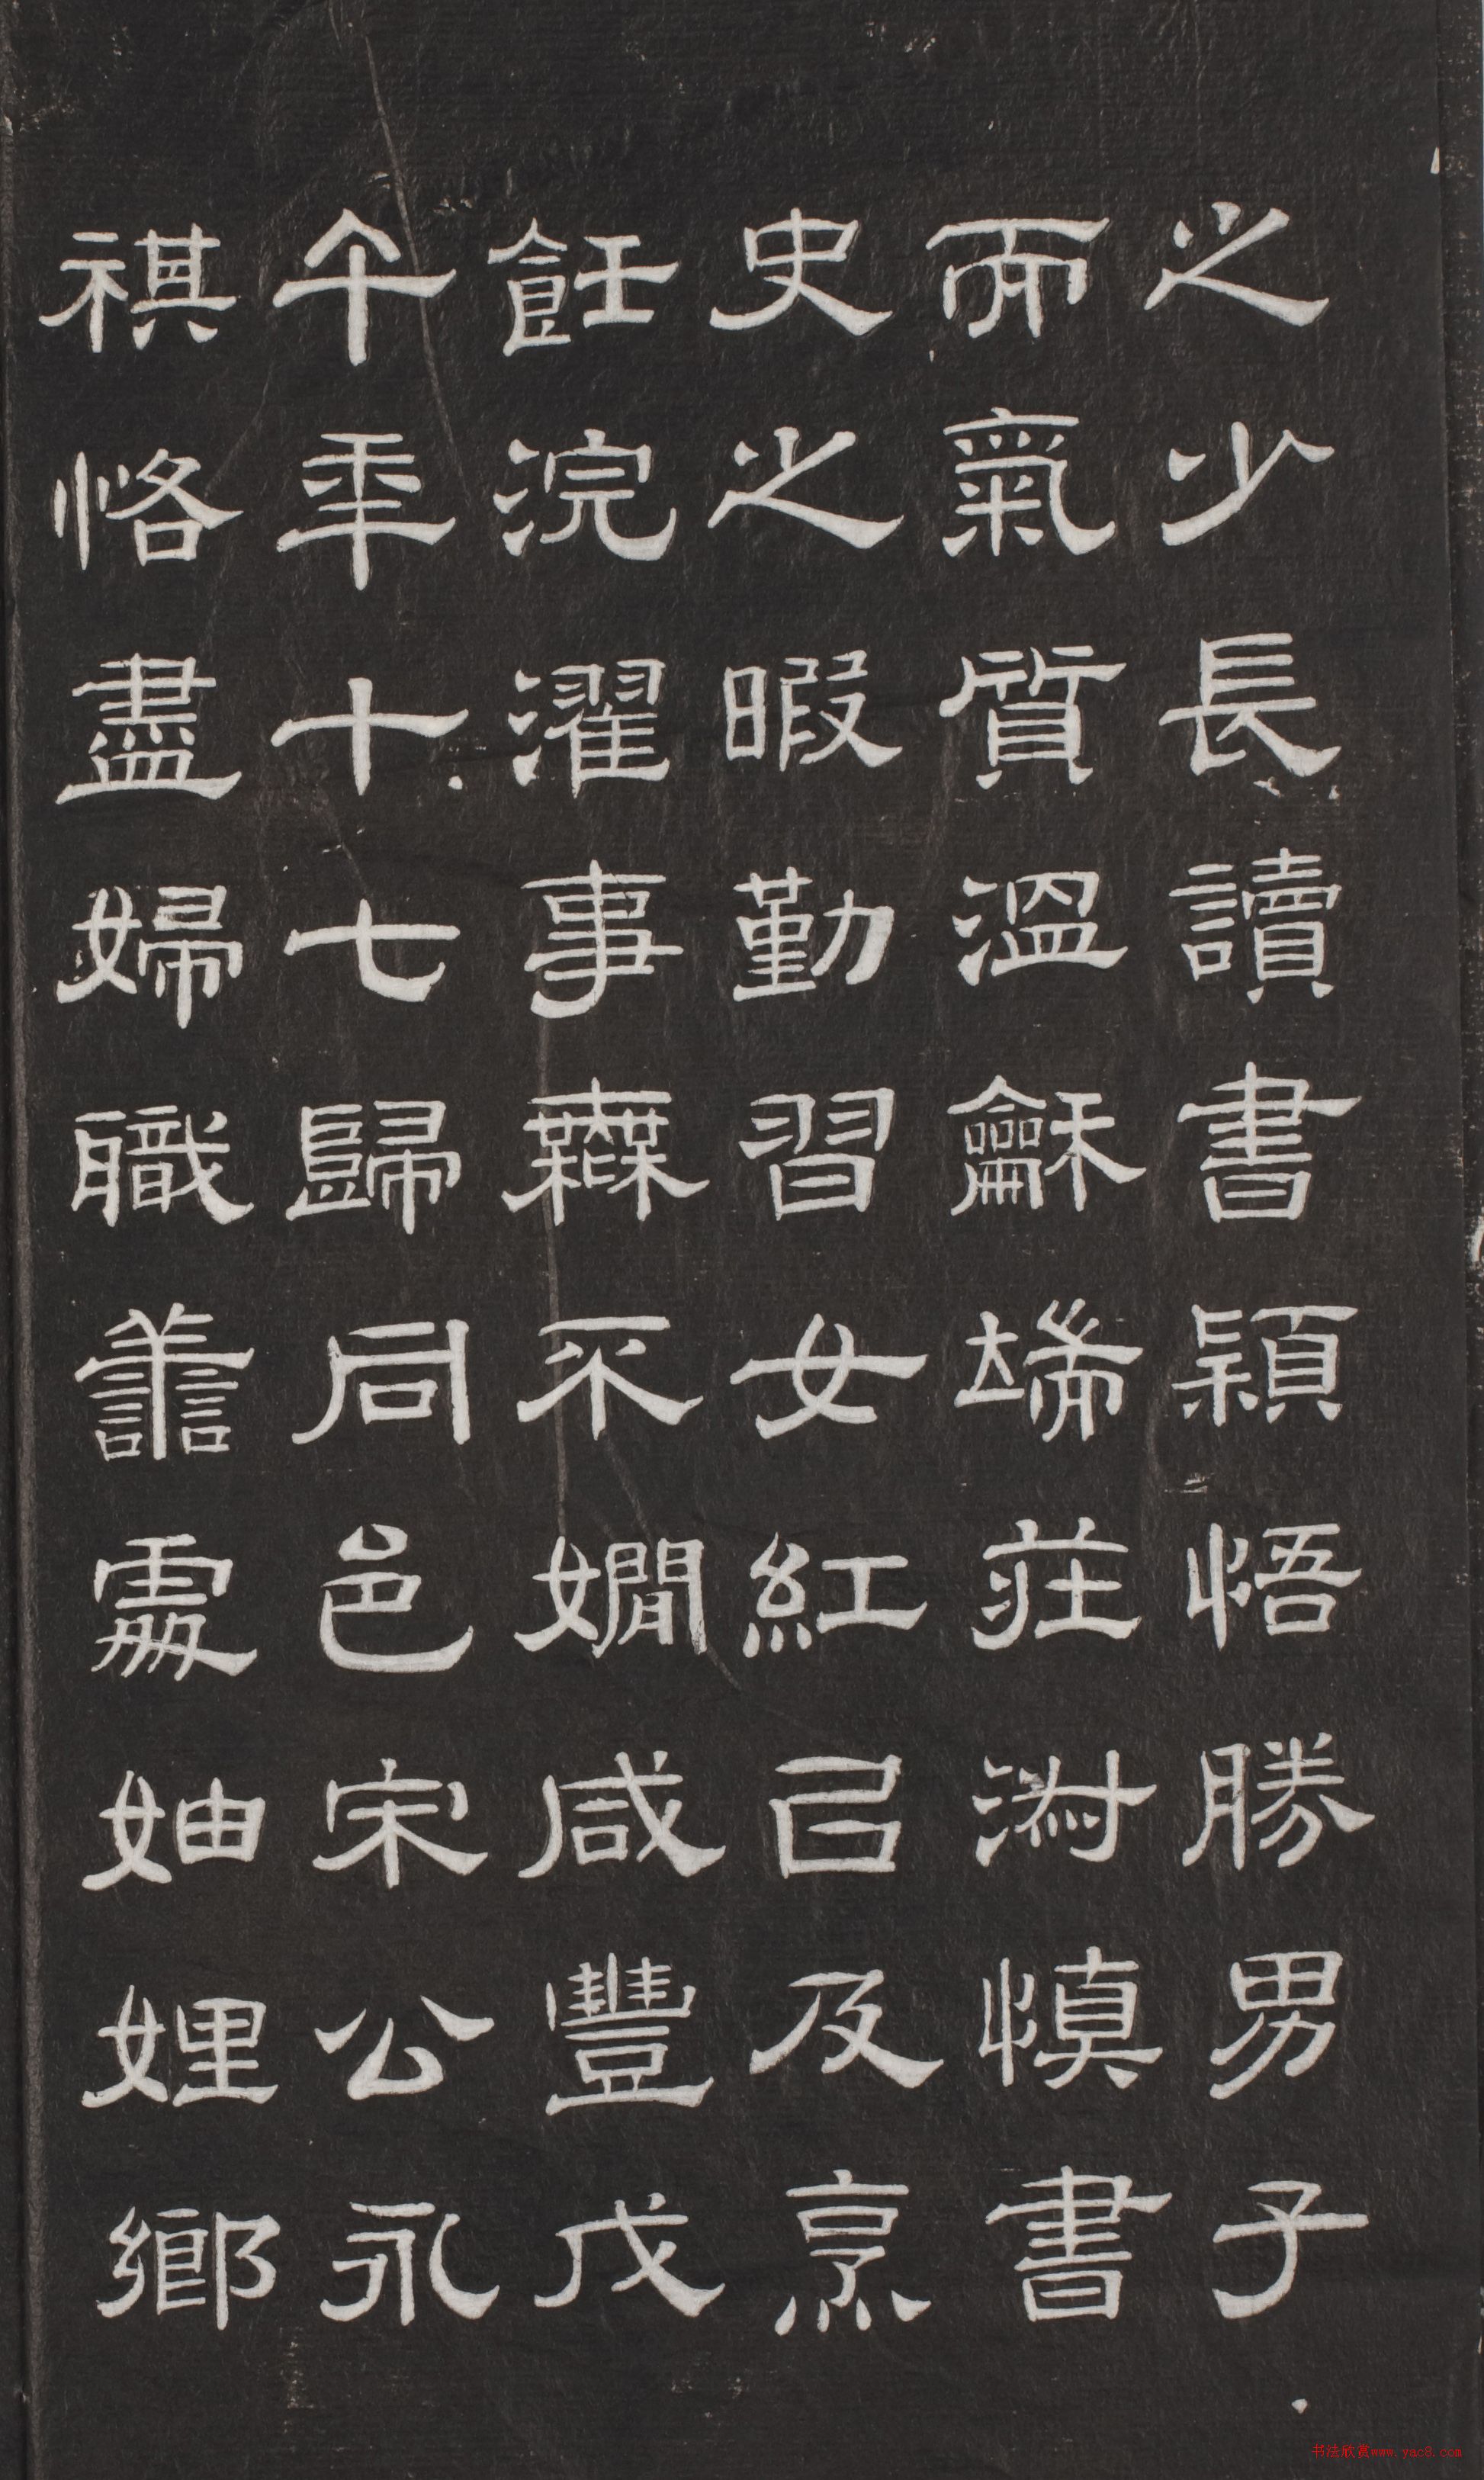 之少長讀書穎悟勝男子
而氣質溫龢端莊澍慎書
史之暇勤習女紅以及烹
飪浣濯事無不嫺咸豐戊
午年十七歸同邑宋公永
祺恪盡婦職譱處妯娌鄉
书法欣赏www.yac8.com